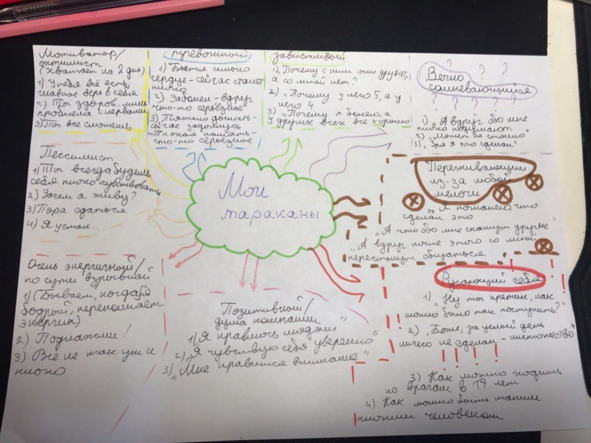 Мотиватор/
оптимист
(хватает на 2 дня)
1) У тебя всё есть,
главное верь в себя
2) Ты здоров, лишь
проблема с нервами
3) Ты все сможешь
тревожный
1) Бьется сильно
сердце - сейчас станет
плохо
2) Заболел - вдруг
что-то серьёзное
3) Тяжело дышать -
сейчас задохнусь
завистливый
1) „Почему с ним они дружат,
а со мной нет?
2) „Почему у него 5, а у
него 4
3) „Почему я болею, а
у других всё хорошо
Вечно
сомневающийся
? ? ? ?
1) „А вдруг обо мне
плохо подумают
2) „Может не стоило
3) „Зря я это сделал"
Пессимист
1) Ты всегда будешь
себя плохо чувствовать
2) Зачем я живу?
3) Пора сдаться
4) Я устал...
Мои
тараканы
Переживающий
из-за любой
мелочи
„Я пожалел, что
сделал это
„А что обо мне скажут другие"
„А вдруг после этого со мной
перестанут общаться
Очень энергичный/
по сути взрывной
1) Бывает, когда я
бодрый, переполняет
энергия)
2) Поднажми!
3) Все не так уж и
плохо
Позитивный/
душа компании
1) „Я нравлюсь людям"
2) „Я чувствую себя уверенно"
3) „Мне нравится внимание"
Ругающий себя
1) "Ну ты кретин, как
можно было так поступить?"
2) „Боже, за целый день
ничего не сделал - ничтожество"
3) Как можно ходить
по врачам в 19 лет
4) Как можно быть таким
плохим человеком